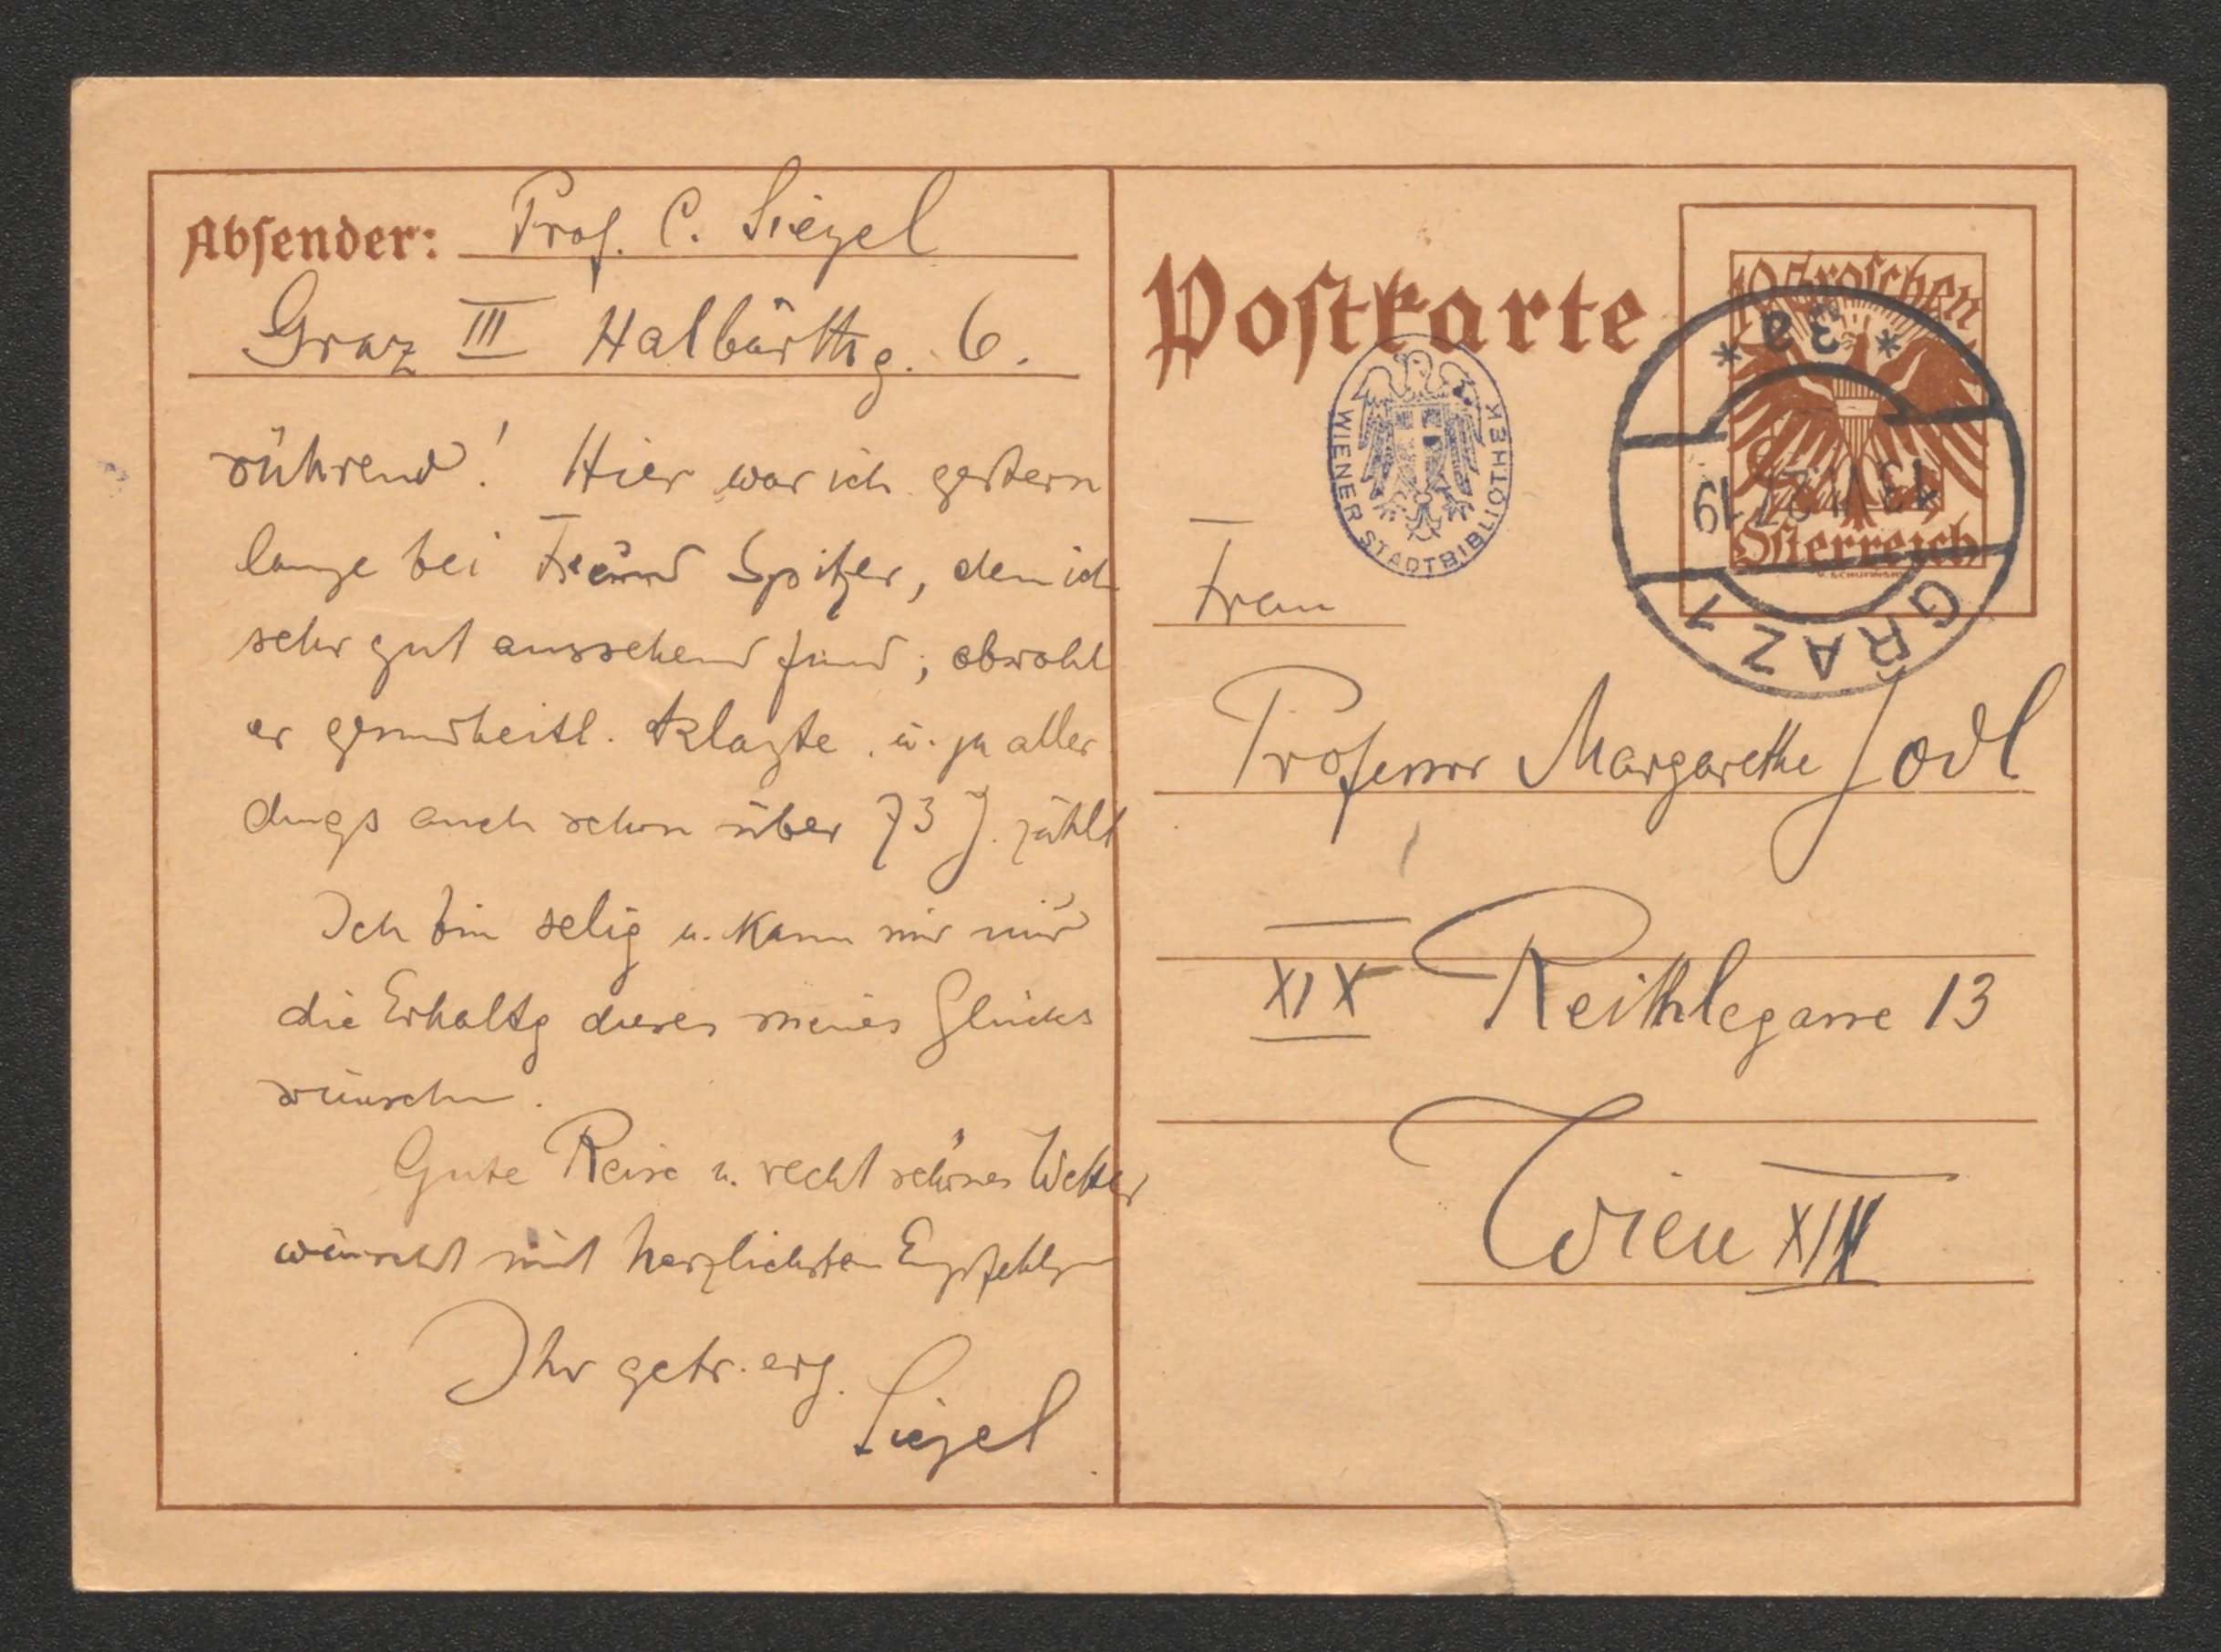 Absender: Prof. C. Siegel
Graz III Halbärthg. 6.
rührend! Hier war ich gestern
lange bei Freund Spitzer, den ich
sehr gut aussehend fand, obwohl
er gesundheitl. klagte u. ja aller
dings auch schon über 73 J. zählt
Ich bin selig u. kann mir nur
die Erhaltg dieses meines Glückes
wünschen.
Gute Reise u. recht schönes Wetter
wünscht mit herzlichsten Empfehlgn
Ihr getr. erg.
Siegel
Postkarte
10 Groschen
Österreich
* 3a *
13.VI.27 19
GRAZ 1
WIENER STADTBIBLIOTHEK
Frau
Professor Margarethe Jodl
XIX Reithlegasse 13
Wien